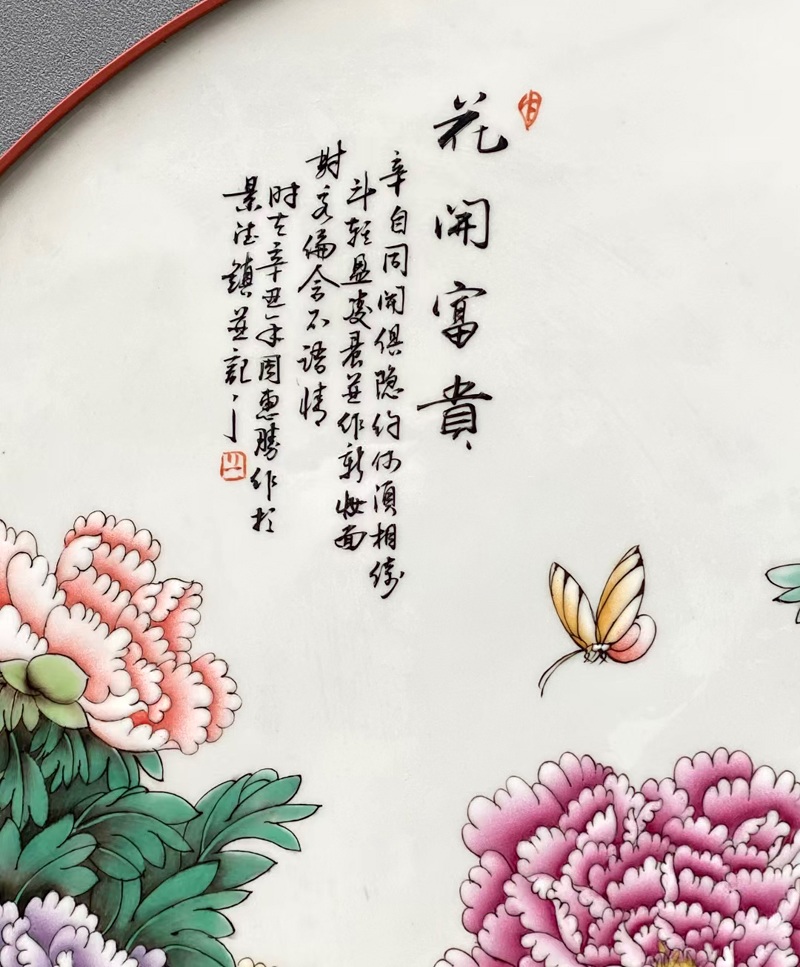 花開富貴
辛自同開俱隐约何须相倚
斗轻盈凌晨並作新妝面
對客偏含不語情
时在辛丑年周惠勝作於
景德鎮並記